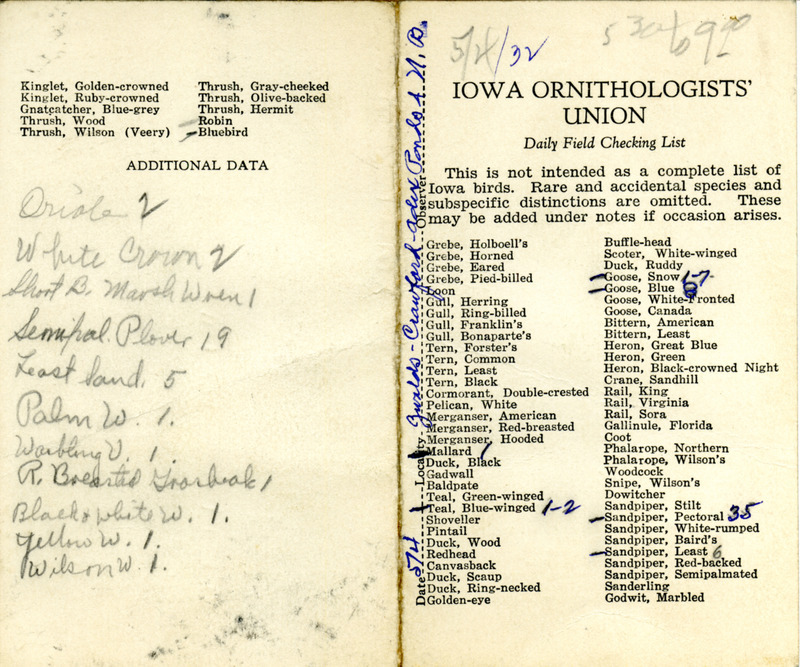 Kinglet, Golden-crowned
Kinglet, Ruby-crowned
Gnatcatcher, Blue-grey
Thrush, Wood
Thrush, Wilson (Veery)
Thrush, Gray-cheeked
Thrush, Olive-backed
Thrush, Hermit
Robin
Bluebird
ADDITIONAL DATA
Oriole 2
White Crown 2
Short B. Marsh Wren 1
Semipal. Plover 19
Least Sand. 5
Palm W. 1.
Warbling V. 1.
R. Breasted Grosbeak 1
Black & white W. 1.
Yellow W. 1.
Wilson W. 1.
5/4/32
5 30 to 9 00
IOWA ORNITHOLOGISTS'
UNION
Daily Field Checking List
This is not intended as a complete list of
Iowa birds. Rare and accidental species and
subspecific distinctions are omitted. These
may be added under notes if occasion arises.
Date 5/4 Locality Crawford - Ponds & N. B. Observer
Grebe, Holboell's
Grebe, Horned
Grebe, Eared
Grebe, Pied-billed
Loon
Gull, Herring
Gull, Ring-billed
Gull, Franklin's
Gull, Bonaparte's
Tern, Forster's
Tern, Common
Tern, Least
Tern, Black
Cormorant, Double-crested
Pelican, White
Merganser, American
Merganser, Red-breasted
Merganser, Hooded
Mallard 1
Duck, Black
Gadwall
Baldpate
Teal, Green-winged
Teal, Blue-winged 1-2
Shoveller
Pintail
Duck, Wood
Redhead
Canvasback
Duck, Scaup
Duck, Ring-necked
Golden-eye
Buffle-head
Scoter, White-winged
Duck, Ruddy
Goose, Snow 1-7
Goose, Blue
Goose, White-Fronted
Goose, Canada
Bittern, American
Bittern, Least
Heron, Great Blue
Heron, Green
Heron, Black-crowned Night
Crane, Sandhill
Rail, King
Rail, Virginia
Rail, Sora
Gallinule, Florida
Coot
Phalarope, Northern
Phalarope, Wilson's
Woodcock
Snipe, Wilson's
Dowitcher
Sandpiper, Stilt
Sandpiper, Pectoral 35
Sandpiper, White-rumped
Sandpiper, Baird's
Sandpiper, Least 6
Sandpiper, Red-backed
Sandpiper, Semipalmated
Sanderling
Godwit, Marbled